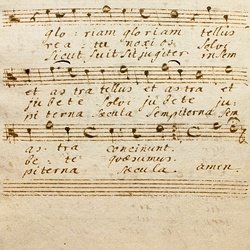 glo: riam gloriam tellus
rea tu noxios Solvi
Sicut fuit sit jugiter in sem
et as tra tellus et as tra et
jubete Solvi jubete ju:
piterna Sæcula Sempiterna Sem
as: tra concinunt.
be: te quæsumus.
piterna Sæcula amen.